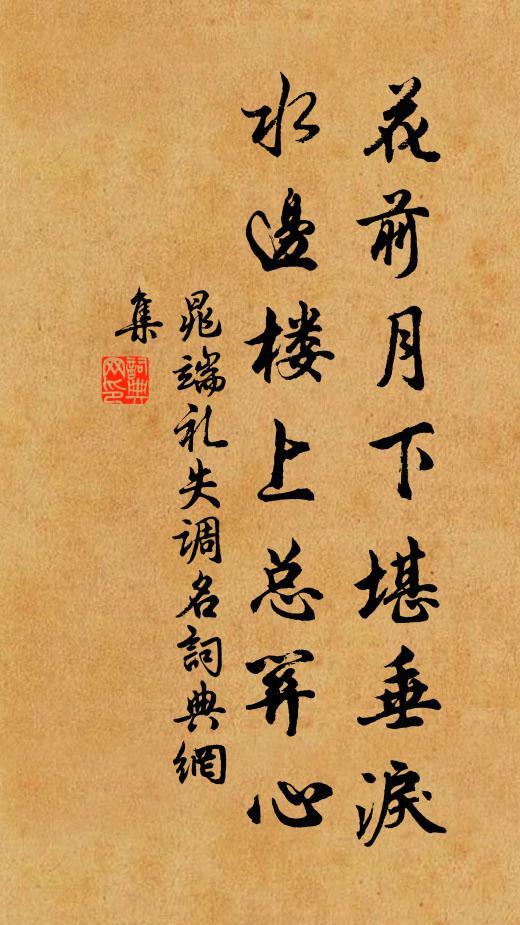 花前月下堪垂淚
水邊楼上总関心
晁端礼失调名詞典網
集
詞典网印